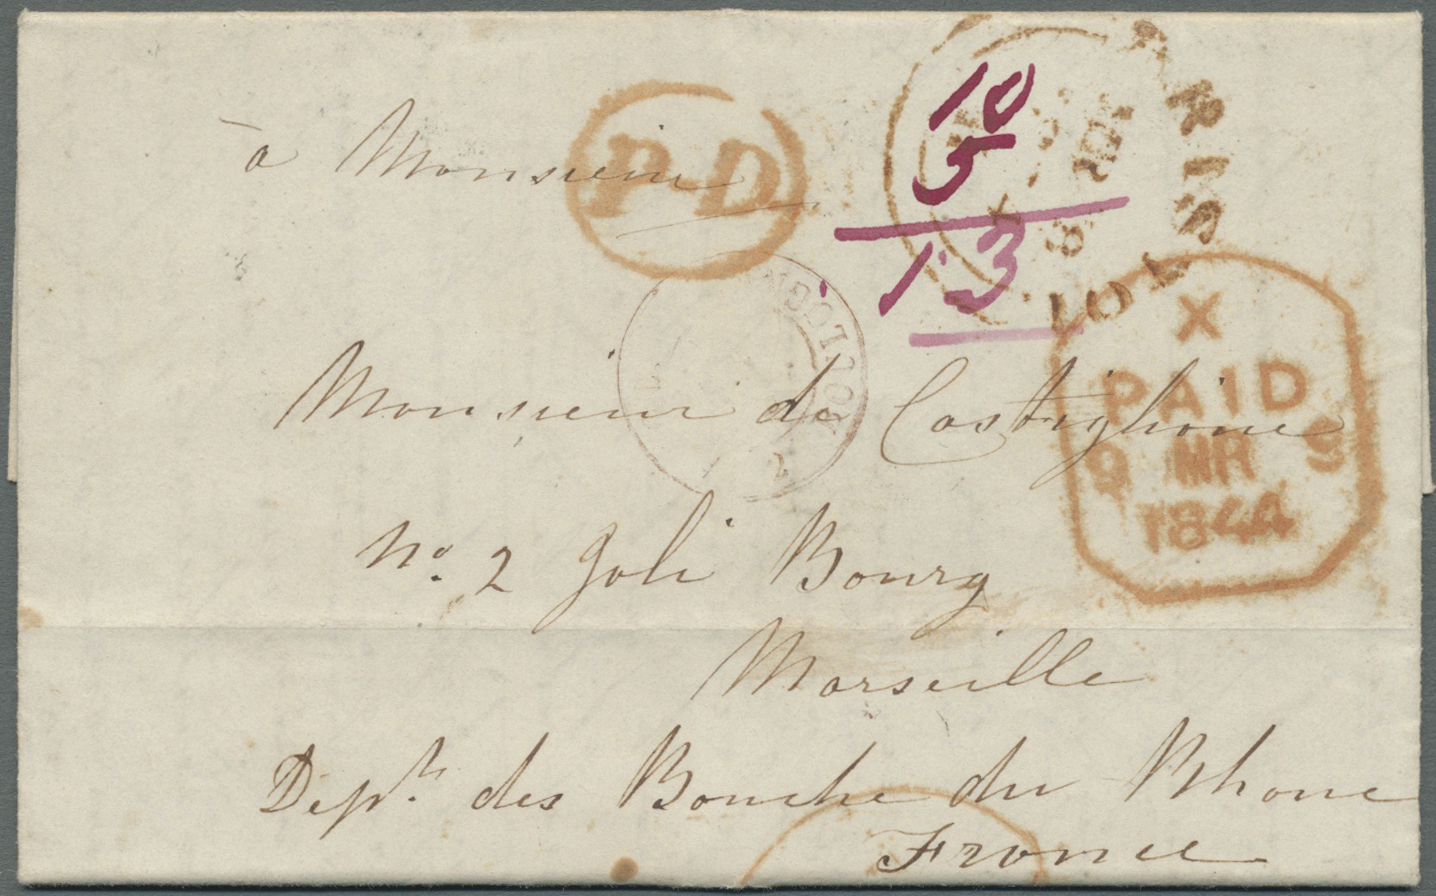 à Monsieur
P.D
10
5
1.3
BRISTOL
MR 8
BOULOGN
2
X
PAID
9 MR 9
1844
Monsieur de Castiglione
No. 2 Joli Bourg
Marseille
Dept. des Bouche du Rhone
France